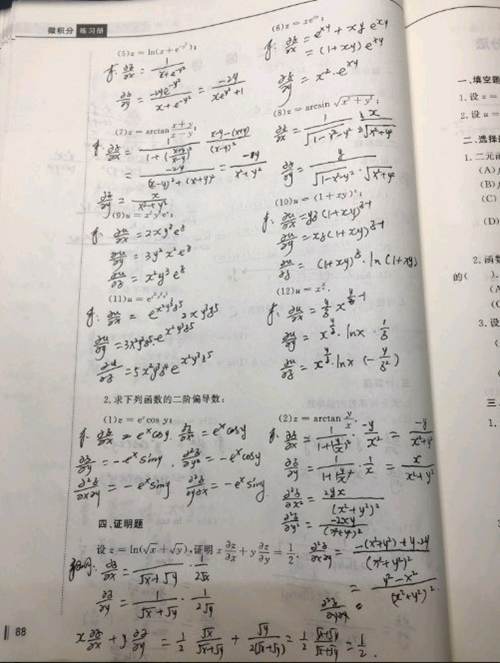 微积分 练习册
(5)z = ln(x + e^{-y²});
解: ∂z/∂x = 1/(x+e^{-y²})
∂z/∂y = -2ye^{-y²}/(x+e^{-y²}) = -2y/(xe^{y²}+1)
(6)z = xe^{xy};
解: ∂z/∂x = e^{xy} + xy e^{xy}
= (1+xy) e^{xy}
∂z/∂y = x²·e^{xy}
(7)z = arctan (x+y)/(x−y);
解: ∂z/∂x = 1/(1+((x+y)/(x-y))²) · (x-y-(x+y))/(x-y)²
= -2y/((x-y)²+(x+y)²) = -y/(x²+y²)
∂z/∂y = x/(x²+y²)
(8)z = arcsin √(x²+y²);
∂z/∂x = 1/√(1-x²-y²) · x/√(x²+y²)
∂z/∂y = y/(√(1-x²-y²)·√(x²+y²))
(9)u = x²y³e^z;
解: ∂u/∂x = 2xy³e^z
∂u/∂y = 3y²x²e^z
∂u/∂z = x²y³e^z
(10)u = (1+xy)^z;
解: ∂u/∂x = yz(1+xy)^{z-1}
∂u/∂y = xz(1+xy)^{z-1}
∂u/∂z = (1+xy)^z · ln(1+xy)
(11)u = e^{x²y³z⁵};
解: ∂u/∂x = e^{x²y³z⁵} 2xy³z⁵
∂u/∂y = 3x²y²z⁵·e^{x²y³z⁵}
∂u/∂z = 5x²y³z⁴e^{x²y³z⁵}
(12)u = x^{y/z}.
解: ∂u/∂x = y/z x^{y/z-1}
∂u/∂y = x^{y/z}·lnx·1/z
∂u/∂z = x^{y/z}·lnx(-y/z²)
2. 求下列函数的二阶偏导数:
(1)z = e^x cos y;
解: ∂z/∂x = e^x cosy, ∂²z/∂x² = e^x cosy
∂z/∂y = -e^x siny, ∂²z/∂y² = -e^x cosy
∂²z/∂x∂y = -e^x siny ∂²z/∂y∂x = -e^x siny
(2)z = arctan y/x.
解: ∂z/∂x = 1/(1+(y/x)²) · -y/x² = -y/(x²+y²)
∂z/∂y = 1/(1+(y/x)²) · 1/x = x/(x²+y²)
∂²z/∂x² = 2yx/(x²+y²)²
∂²z/∂y² = -2xy/(x²+y²)²
∂²z/∂x∂y = (-(x²+y²)+y·2y)/(x²+y²)²
= (y²-x²)/(x²+y²)²
∂²z/∂y∂x =
四、证明题
设 z = ln(√x + √y),证明 x ∂z/∂x + y ∂z/∂y = 1/2.
证明: ∂z/∂x = 1/(√x+√y) · 1/(2√x)
∂z/∂y = 1/(√x+√y) · 1/(2√y)
x ∂z/∂x + y ∂z/∂y = 1/2 √x/(√x+√y) + √y/(2(√x+√y)) = 1/2 (√x+√y)/(√x+√y) = 1/2.
88
一、填空题
1. 设 z
2. 设 u =
二、选择
1. 二元
(A)
(B)
(C)
(D)
2. 函数
的( ).
3. 设
三、
1.